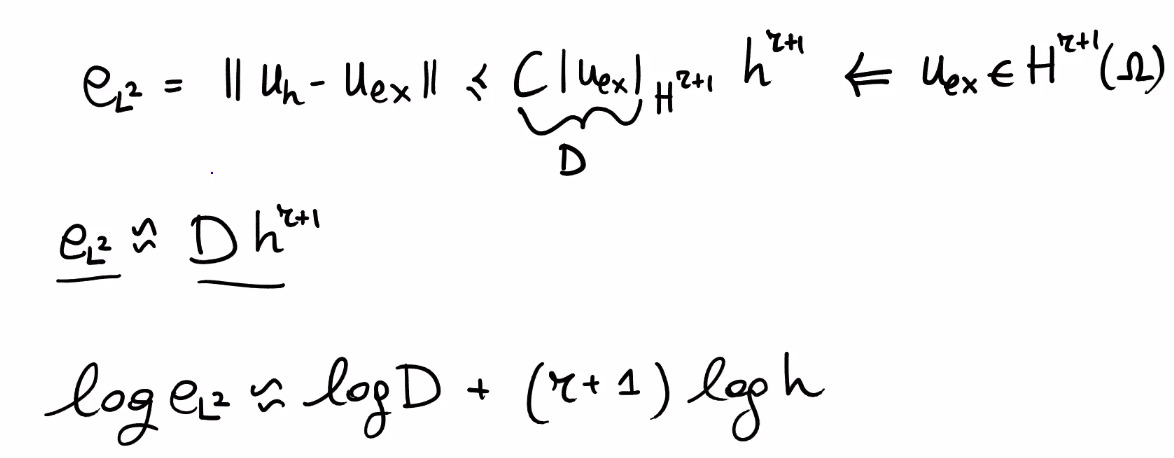 e_{L²} = ‖ u_h - u_ex ‖ ≤ C |u_ex|_{H^{r+1}} h^{r+1} ⇐ u_ex ∈ H^{r+1}(Ω)
D
e_{L²} ≈ D h^{r+1}
log e_{L²} ≈ log D + (r+1) log h